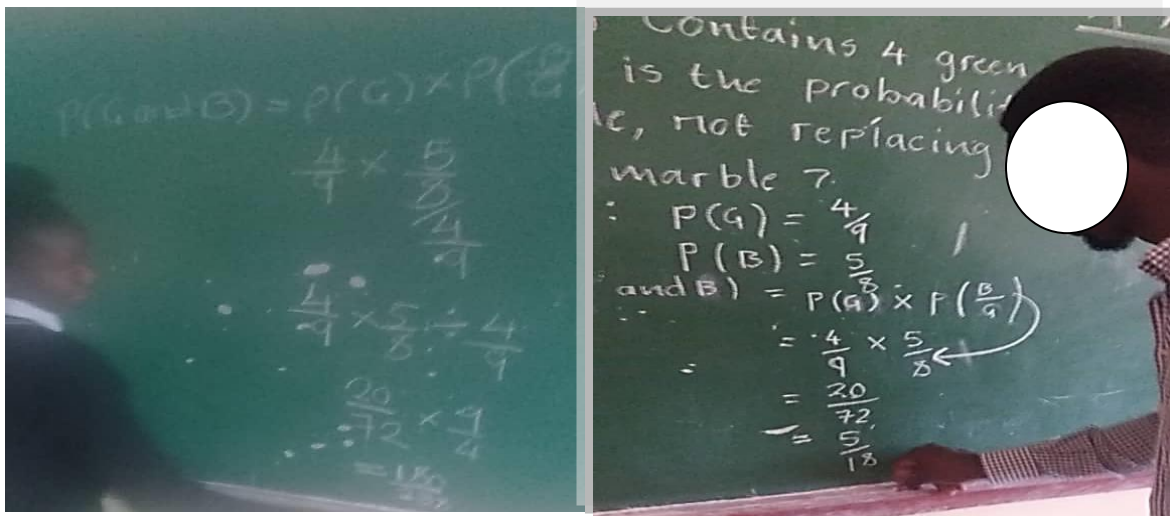 P(G and B) = P(G) × P(B/G)
4/9 × 5/8 / 4/9
4/9 × 5/8 ÷ 4/9
20/72 × 9/4
= 180
Contains 4 green
is the probabili
, not replacing
marble ?
: P(G) = 4/9
P(B) = 5/8
and B) = P(G) × P(B/G)
= 4/9 × 5/8
= 20/72
= 5/18